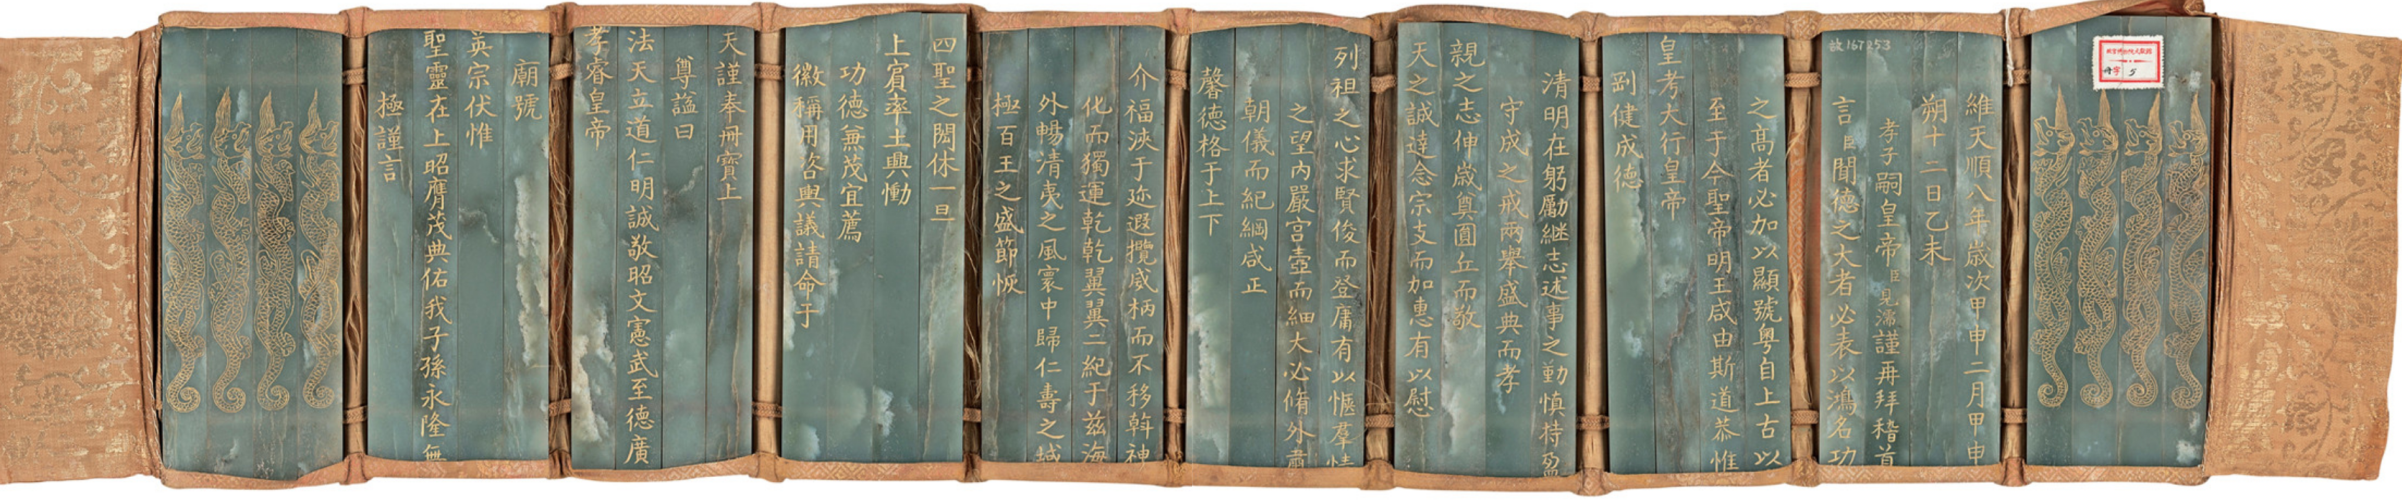 故167253
維天順八年歲次甲申二月甲申
朔十二日乙未
孝子嗣皇帝臣見濡謹再拜稽首
言臣聞德之大者必表以鴻名功
之高者必加以顯號粵自上古以
至于今聖帝明王咸由斯道恭惟
皇考大行皇帝
剛健成德
清明在躬勵継志述事之勤慎持盈
守成之戒兩舉盛典而孝
親之志伸歲奠圓丘而敬
天之誠達念宗支而加惠有以慰
列祖之心求賢俊而登庸有以愜羣情
之望內嚴宮壼而細大必脩外肅
朝儀而紀綱咸正
馨德格于上下
介福浹于迩遐攬威柄而不移斡神
化而獨運乾乾翼翼二紀于兹海
外暢清夷之風寰中歸仁壽之域
極百王之盛節恢
四聖之閎休一旦
上賓率土興慟
功德兼茂宜薦
徽稱用咨輿議請命于
天謹奉冊寶上
尊謚曰
法天立道仁明誠敬昭文憲武至德廣
孝睿皇帝
廟號
英宗伏惟
聖靈在上昭膺茂典佑我子孫永隆無
極謹言